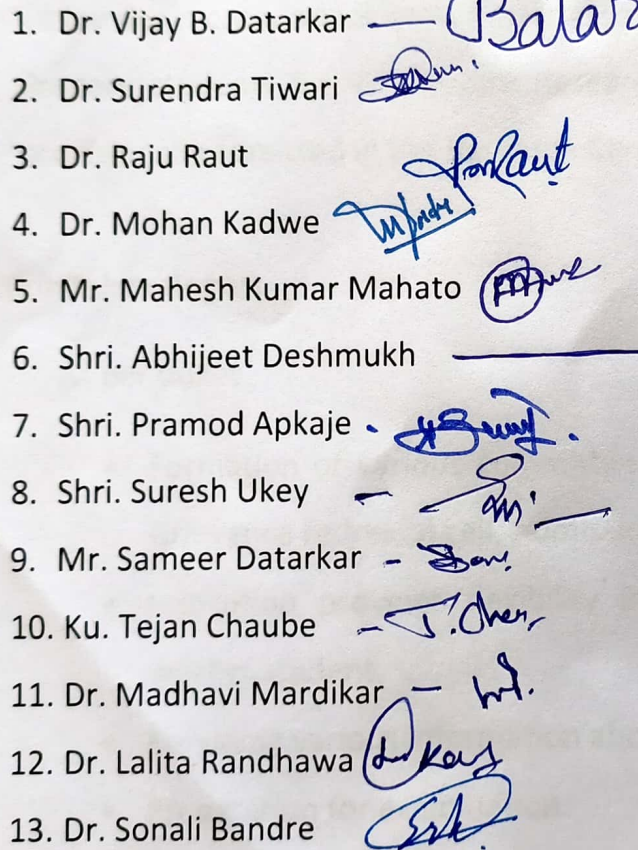 1. Dr. Vijay B. Datarkar
2. Dr. Surendra Tiwari
3. Dr. Raju Raut
4. Dr. Mohan Kadwe
5. Mr. Mahesh Kumar Mahato
6. Shri. Abhijeet Deshmukh
7. Shri. Pramod Apkaje
8. Shri. Suresh Ukey
9. Mr. Sameer Datarkar
10. Ku. Tejan Chaube
11. Dr. Madhavi Mardikar
12. Dr. Lalita Randhawa
13. Dr. Sonali Bandre